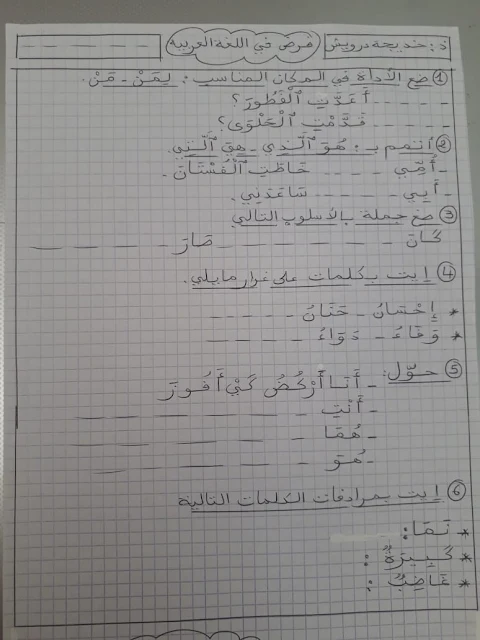 ذ: خديجة درويش فرض في اللغة العربية
① ضع الأداة في المكان المناسب : لِمَنْ - مَنْ.
- - - - - أَعَدَّتِ ٱلْفَطُورَ؟
- - - - - قَدَّمْتِ ٱلْحَلْوَى؟
② أتمم ب: هُوَ ٱلَّذِي - هِيَ ٱلَّتِي.
- أُمِّي - - - - خَاطَتِ ٱلْفُسْتَانَ.
- أَبِي - - - - - سَاعَدَنِي.
③ ضع جملة بالأسلوب التالي
كَانَ - - - - - - صَارَ - - - - -
④ إيت بكلمات على غرار مايلي.
* إِحْسَانُ - حَنَانُ - - - - -
* وَفَاءُ - دَوَاءُ - - - - -
⑤ حوّل:
- أَنَا أَرْكُضُ كَيْ أَفُوزَ
- أَنْتِ - - - - - -
- هُمَا - - - - - -
- هُوَ - - - - - -
⑥ إيت بمرادفات الكلمات التالية
* نَمَا:
* كَبِيرَةٌ :
* غَاضِبٌ :